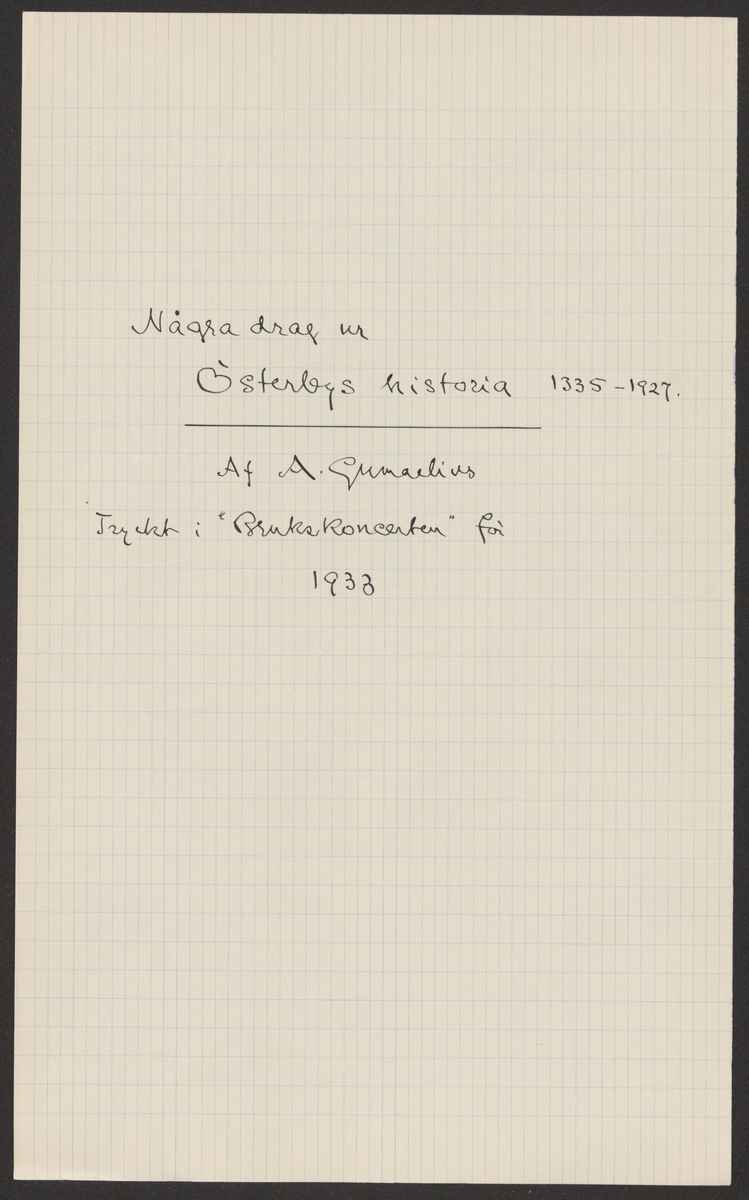 Några drag ur
Österbys historia 1335-1927.
Af A. Gumaelius
Tryckt i "Brukskoncerten" för
1933